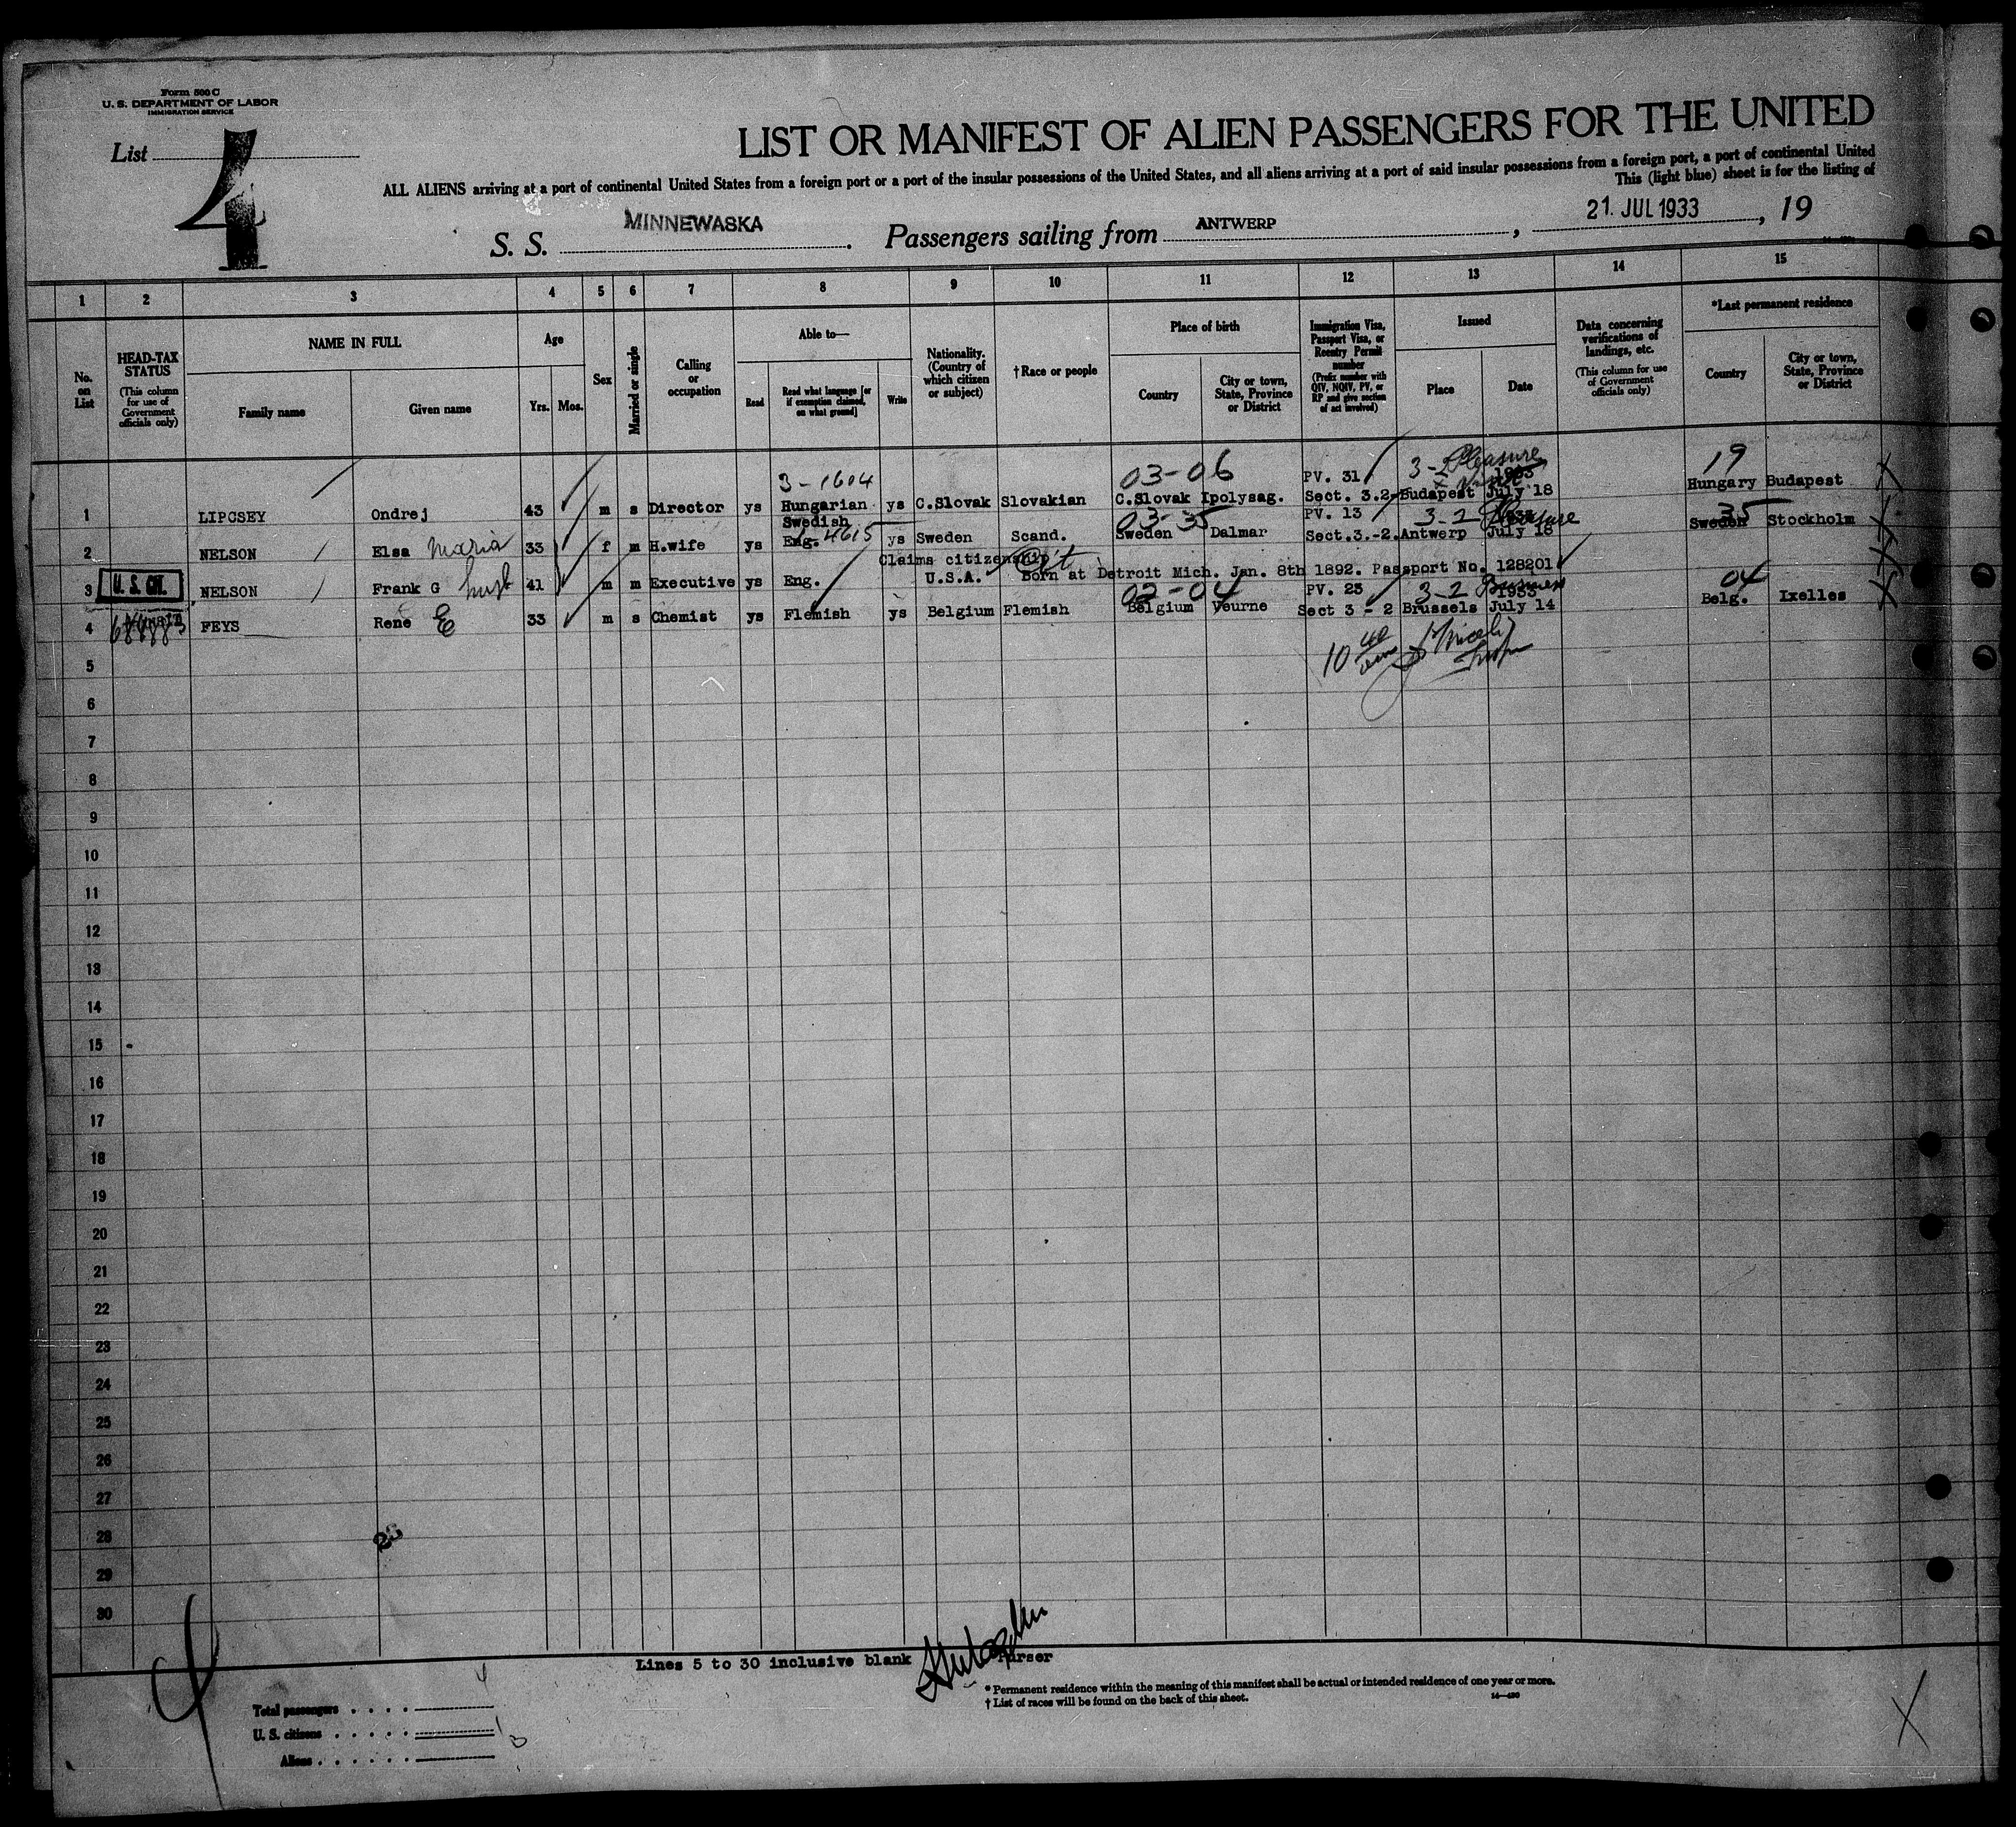 Form 500 C
U. S. DEPARTMENT OF LABOR
IMMIGRATION SERVICE
List 4
LIST OR MANIFEST OF ALIEN PASSENGERS FOR THE UNITED
ALL ALIENS arriving at a port of continental United States from a foreign port or a port of the insular possessions of the United States, and all aliens arriving at a port of said insular possessions from a foreign port, a port of continental United
This (light blue) sheet is for the listing of
S. S. MINNEWASKA. Passengers sailing from ANTWERP, 21. JUL 1933, 19
1 2 3 4 5 6 7 8 9 10 11 12 13 14 15
No. on List
HEAD-TAX STATUS
(This column for use of Government officials only)
NAME IN FULL
Family name
Given name
Age
Yrs. Mos.
Sex
Married or single
Calling or occupation
Able to—
Read
Read what language [or if exemption claimed, on what ground]
Write
Nationality. (Country of which citizen or subject)
†Race or people
Place of birth
Country
City or town, State, Province or District
Immigration Visa, Passport Visa, or Reentry Permit number
(Prefix number with QIV, NQIV, PV, or RP and give section of act involved)
Issued
Place
Date
Data concerning verifications of landings, etc.
(This column for use of Government officials only)
*Last permanent residence
Country
City or town, State, Province or District
3-1604 03-06 PV. 31 3-2 Pleasure 1933 19
1 LIPCSEY Ondrej 43 m s Director ys Hungarian ys C.Slovak Slovakian C.Slovak Ipolysag. Sect. 3.2- Budapest July 18 Hungary Budapest
Swedish 03-35 PV. 13 3-2 Pleasure 1933 35
2 NELSON Elsa Maria 33 f m H.wife ys Eng. 4615 ys Sweden Scand. Sweden Dalmar Sect.3.-2. Antwerp July 18 Sweden Stockholm
Claims citizenship
3 U. S. CIT. NELSON Frank G 41 m m Executive ys Eng. U.S.A. Born at Detroit Mich. Jan. 8th 1892. Passport No. 128201
03-04 PV. 23 3-2 Business 1933 04
4 FEYS René E 33 m s Chemist ys Flemish ys Belgium Flemish Belgium Veurne Sect 3 - 2 Brussels July 14 Belg. Ixelles
10 40
5
6
7
8
9
10
11
12
13
14
15
16
17
18
19
20
21
22
23
24
25
26
27
28
29
30
Lines 5 to 30 inclusive blank Purser
* Permanent residence within the meaning of this manifest shall be actual or intended residence of one year or more.
† List of races will be found on the back of this sheet.
14—430
Total passengers . . . . 4
U. S. citizens . . . . . 1
Aliens . . . . . . 3